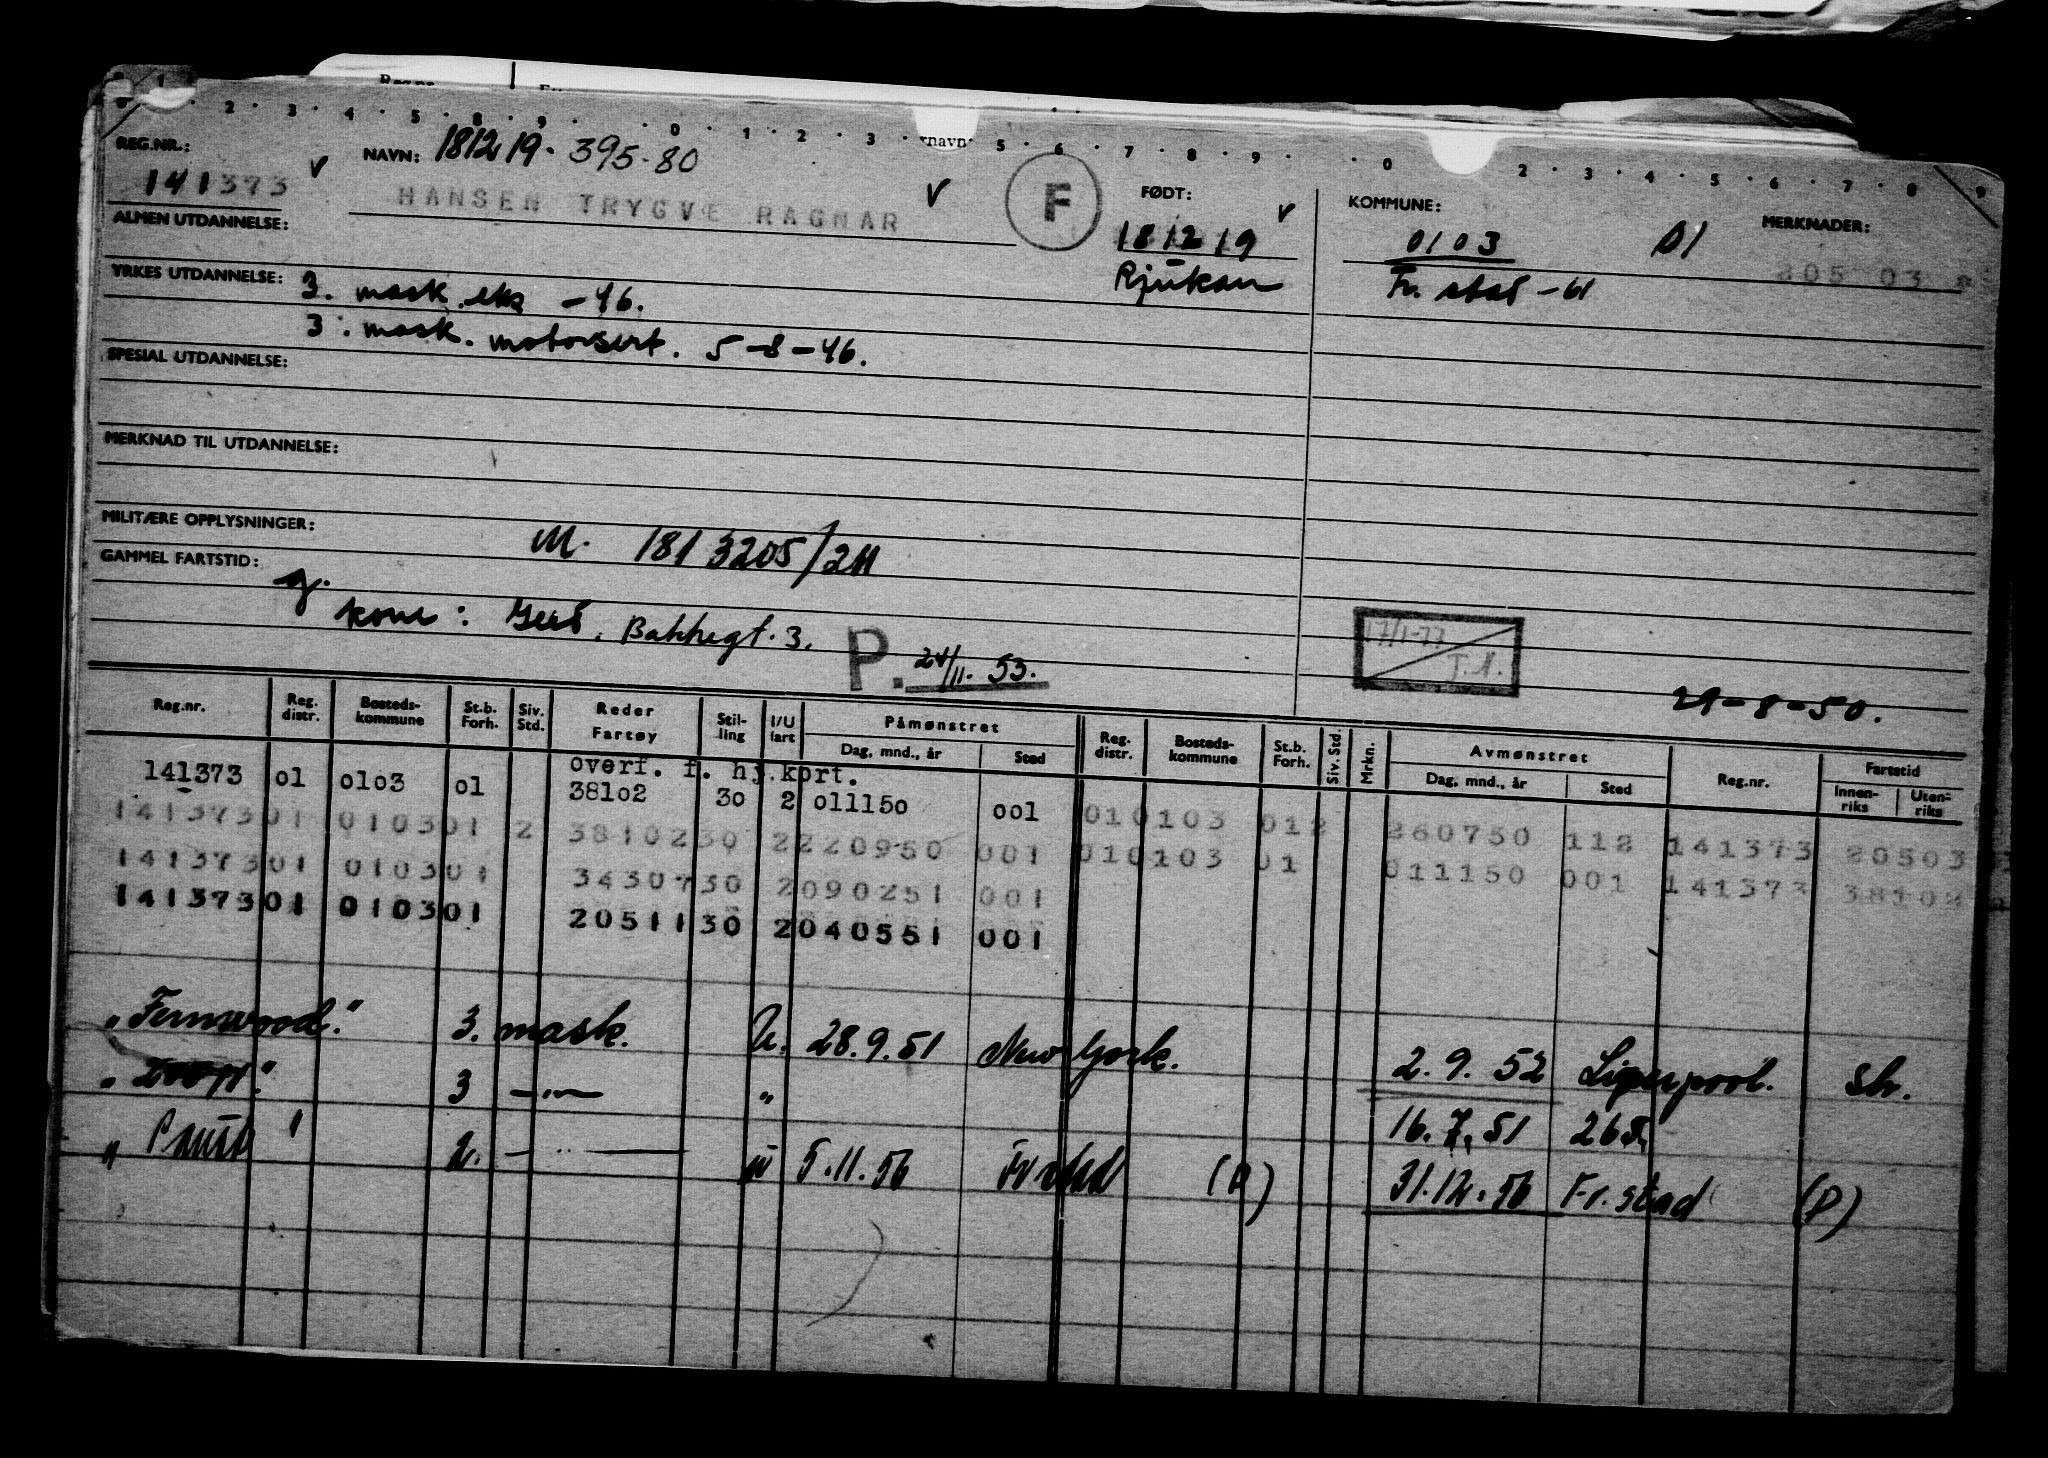 REG.NR.: NAVN: 181219. 395-80 FØDT: KOMMUNE: MERKNADER:
141373 HANSEN TRYGVE RAGNAR F 181219 0103 01
Rjukan Fr. stad - 61
ALMEN UTDANNELSE:
YRKES UTDANNELSE: 3. mask.eks -46.
3. mask. motorsert. 5-8-46.
SPESIAL UTDANNELSE:
MERKNAD TIL UTDANNELSE:
MILITÆRE OPPLYSNINGER: M. 181 3205/211
GAMMEL FARTSTID: g.
kone: Gerd, Bakkegt. 3. P. 24/11.53.
17/1-77
29-8-50.
Reg.nr. Reg. distr. Bosteds-kommune St.b. Forh. Siv. Std. Reder Fartøy Stil-ling I/U fart Påmønstret Dag, mnd., år Sted Reg. distr. Bosteds-kommune St.b. Forh. Siv. Std. Mrkn. Avmønstret Dag, mnd., år Sted Reg.nr. Fartstid Innen-riks Uten-riks
overf. f. hj.kort.
141373 01 0103 01 38102 30 2 011150 001
141373 01 0103 01 2 38102 30 2 220950 001 01 0103 01 2 260750 112 141373 20503
141373 01 0103 01 34307 30 2 090251 001 01 0103 01 011150 001 141373 38102
141373 01 0103 01 20511 30 2 040551 001
"Fernwood." 3. mask. U. 28.9.51 New York. 2.9.52 Liverpool.
3 -"- " 16.7.51 265
2. -"- 5.11.56 Fr stad (D) 31.12.56 Fr. stad (D)